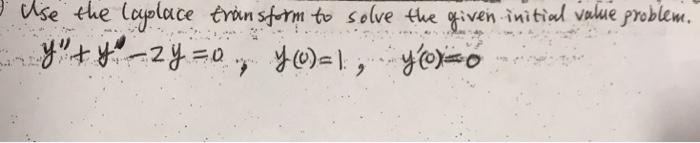 ) Use the Laplace transform to solve the given initial value problem.
y"+y'-2y=0, y(0)=1, y'(0)=0